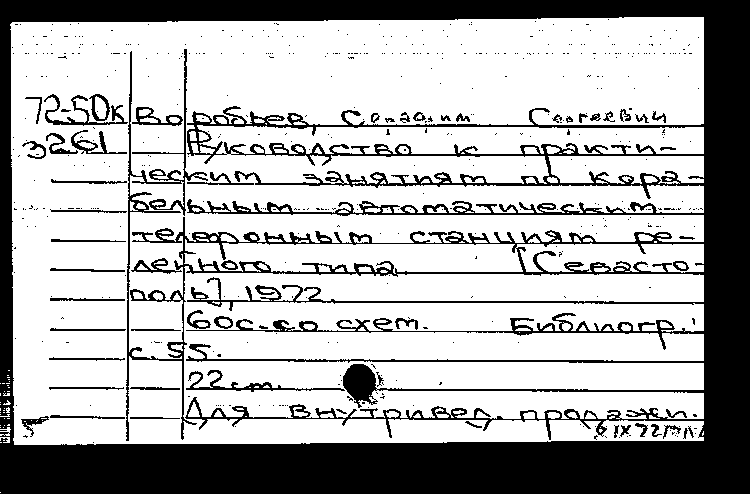 72-50к Воробьев, Серафим Сергеевич
3261 Руководство к практи-
ческим занятиям по кора-
бельным автоматическим
телефонным станциям ре-
лейного типа [Севасто-
поль], 1972.
60с. со схем. Библиогр.:
с. 55.
22 см.
Для внутривед. продажи.
5 6 IX 72